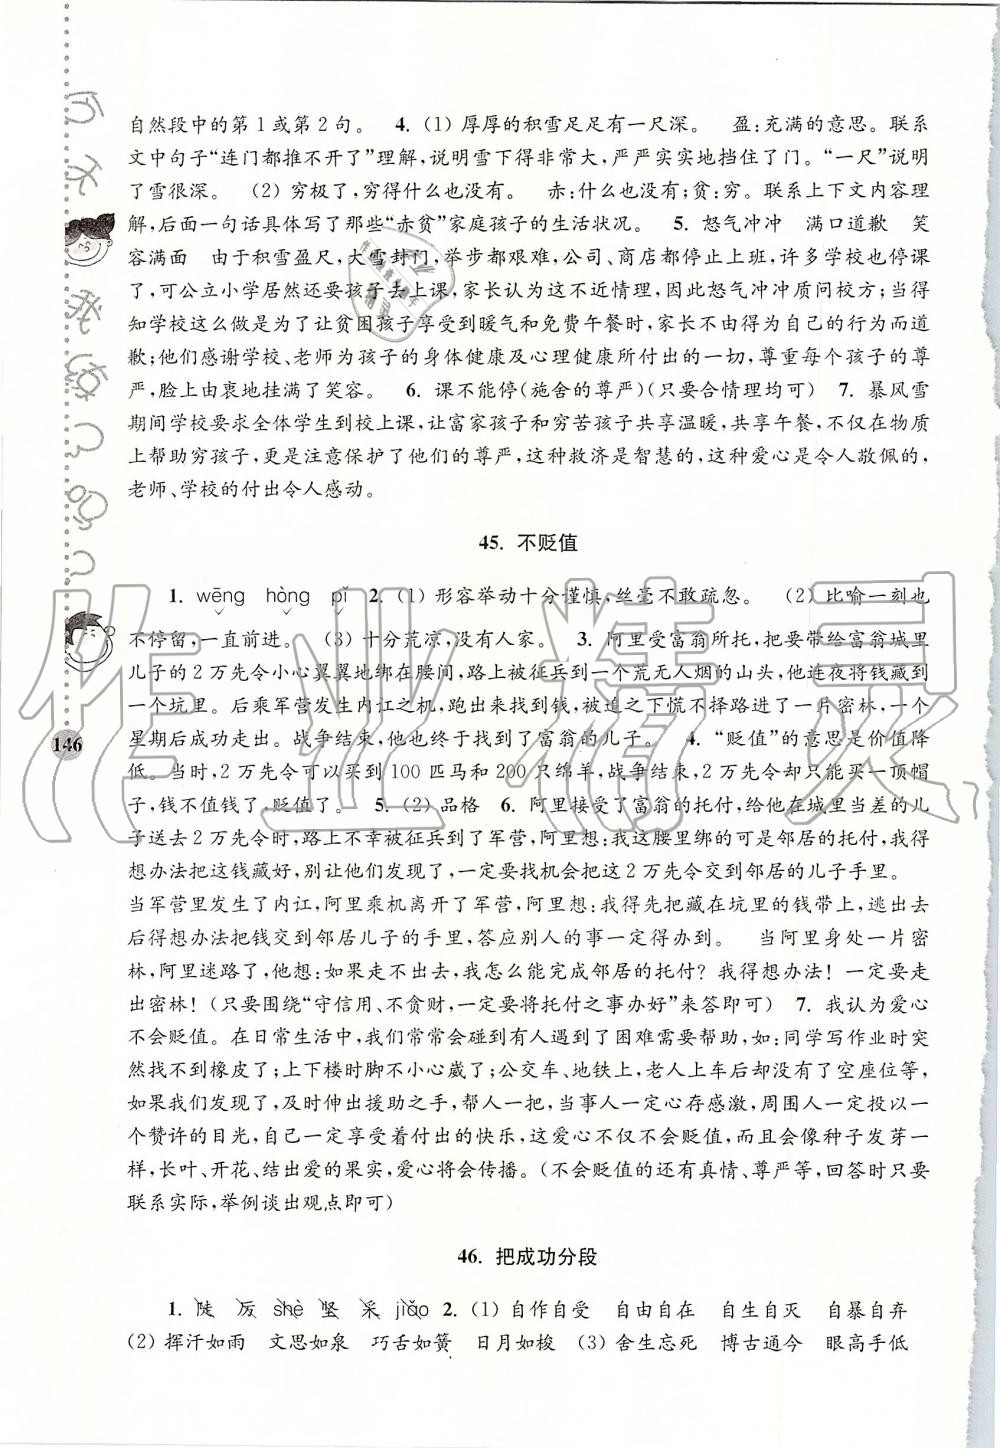 自然段中的第 1 或第 2 句。 4. (1) 厚厚的积雪足足有一尺深。 盈:充满的意思。联系
文中句子“连门都推不开了”理解,说明雪下得非常大,严严实实地挡住了门。“一尺”说明
了雪很深。 (2) 穷极了,穷得什么也没有。 赤:什么也没有;贫:穷。联系上下文内容理
解,后面一句话具体写了那些“赤贫”家庭孩子的生活状况。 5. 怒气冲冲 满口道歉 笑
容满面 由于积雪盈尺,大雪封门,举步都艰难,公司、商店都停止上班,许多学校也停课
了,可公立小学居然还要孩子去上课,家长认为这不近情理,因此怒气冲冲质问校方;当得
知学校这么做是为了让贫困孩子享受到暖气和免费午餐时,家长不由得为自己的行为而道
歉;他们感谢学校、老师为孩子的身体健康及心理健康所付出的一切,尊重每个孩子的尊
严,脸上由衷地挂满了笑容。 6. 课不能停(施舍的尊严)(只要合情理均可) 7. 暴风雪
期间学校要求全体学生到校上课,让富家孩子和穷苦孩子共享温暖,共享午餐,不仅在物质
上帮助穷孩子,更是注意保护了他们的尊严,这种救济是智慧的,这种爱心是令人敬佩的,
老师、学校的付出令人感动。
45. 不贬值
1. wēng hòng pǐ 2. (1) 形容举动十分谨慎,丝毫不敢疏忽。 (2) 比喻一刻也
不停留,一直前进。 (3) 十分荒凉,没有人家。 3. 阿里受富翁所托,把要带给富翁城里
儿子的 2 万先令小心翼翼地绑在腰间,路上被征兵到一个荒无人烟的山头,他连夜将钱藏到
一个坑里。后乘军营发生内讧之机,跑出来找到钱,被迫之下慌不择路进了一片密林,一个
星期后成功走出。战争结束,他终于找到了富翁的儿子。 4. “贬值”的意思是价值降
146
低。当时,2 万先令可以买到 100 匹马和 200 只绵羊,战争结束,2 万先令却只能买一顶帽
子,钱不值钱了,贬值了。 5. (2) 品格 6. 阿里接受了富翁的托付,给他在城里当差的儿
子送去 2 万先令时,路上不幸被征兵到了军营,阿里想:我这腰里绑的可是邻居的托付,我得
想办法把这钱藏好,别让他们发现了,一定要找机会把这 2 万先令交到邻居的儿子手里。
当军营里发生了内讧,阿里乘机离开了军营,阿里想:我得先把藏在坑里的钱带上,逃出去
后得想办法把钱交到邻居儿子的手里,答应别人的事一定得办到。 当阿里身处一片密
林,阿里迷路了,他想:如果走不出去,我怎么能完成邻居的托付? 我得想办法! 一定要走
出密林! (只要围绕“守信用、不贪财,一定要将托付之事办好”来答即可) 7. 我认为爱心
不会贬值。在日常生活中,我们常常会碰到有人遇到了困难需要帮助,如:同学写作业时突
然找不到橡皮了;上下楼时脚不小心崴了;公交车、地铁上,老人上车后却没有了空座位等,
如果我们发现了,及时伸出援助之手,帮人一把,当事人一定心存感激,周围人一定投以一
个赞许的目光,自己一定享受着付出的快乐,这爱心不仅不会贬值,而且会像种子发芽一
样,长叶、开花、结出爱的果实,爱心将会传播。(不会贬值的还有真情、尊严等,回答时只要
联系实际,举例谈出观点即可)
46. 把成功分段
1. 陡 厉 shè 坚 采 jiǎo 2. (1) 自作自受 自由自在 自生自灭 自暴自弃
(2) 挥汗如雨 文思如泉 巧舌如簧 日月如梭 (3) 舍生忘死 博古通今 眼高手低
作业精灵